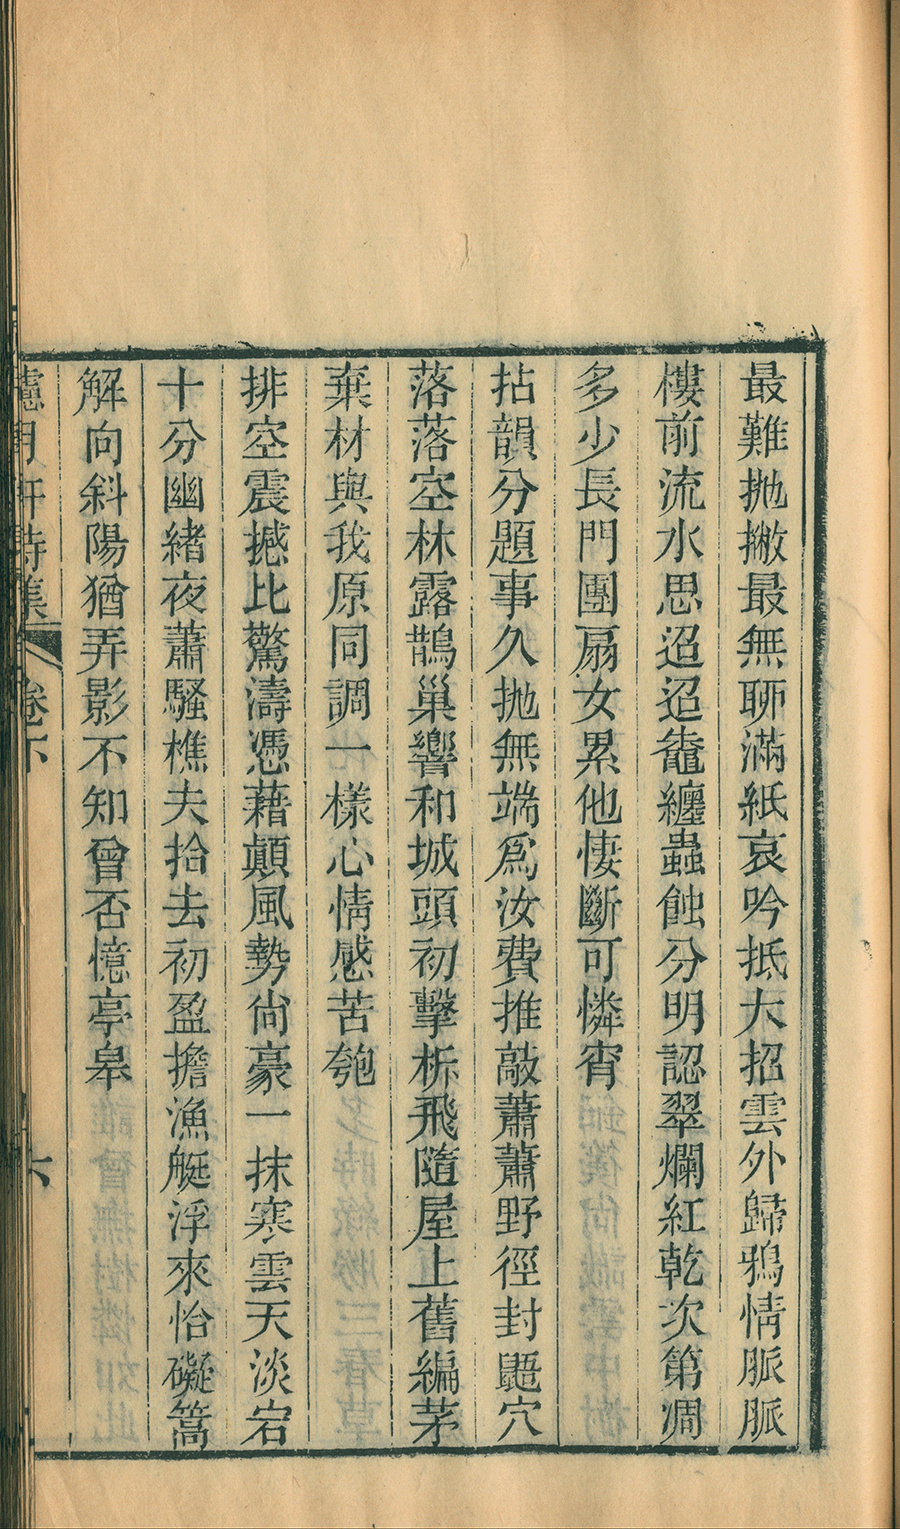 最難拋撇最無聊滿紙哀吟抵大招雲外歸鴉情脈脈
樓前流水思迢迢龕纏蟲蝕分明認翠爛紅乾次第凋
多少長門團扇女累他悽斷可憐宵
拈韻分題事久拋無端爲汝費推敲蕭蕭野徑封鼯穴
落落空林露鵲巢響和城頭初擊柝飛隨屋上舊編茅
棄材與我原同調一樣心情感苦匏
排空震撼比驚濤憑藉顛風勢尙豪一抹寒雲天淡宕
十分幽緒夜蕭騷樵夫拾去初盈擔漁艇浮來怡礙篙
解向斜陽猶弄影不知曾否憶亭皋
月軒詩集
卷下
六